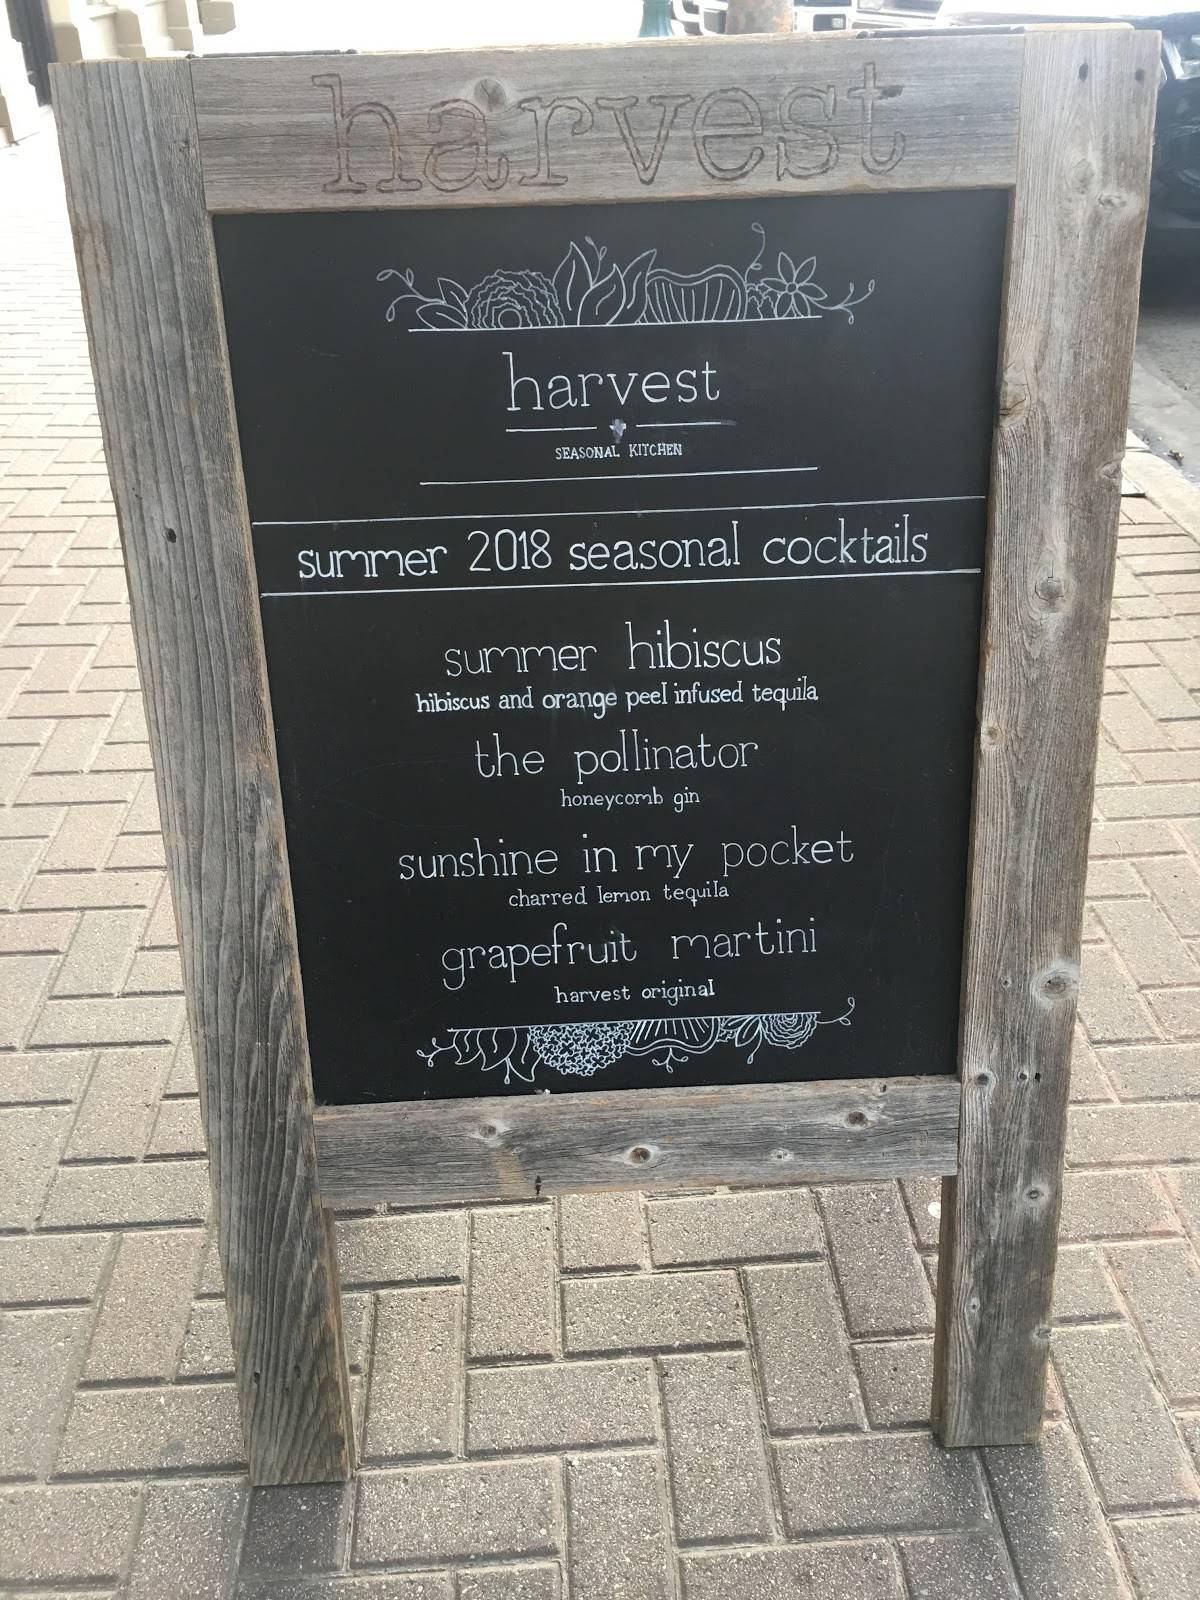 harvest
harvest
SEASONAL KITCHEN
summer 2018 seasonal cocktails
summer hibiscus
hibiscus and orange peel infused tequila
the pollinator
honeycomb gin
sunshine in my pocket
charred lemon tequila
grapefruit martini
harvest original